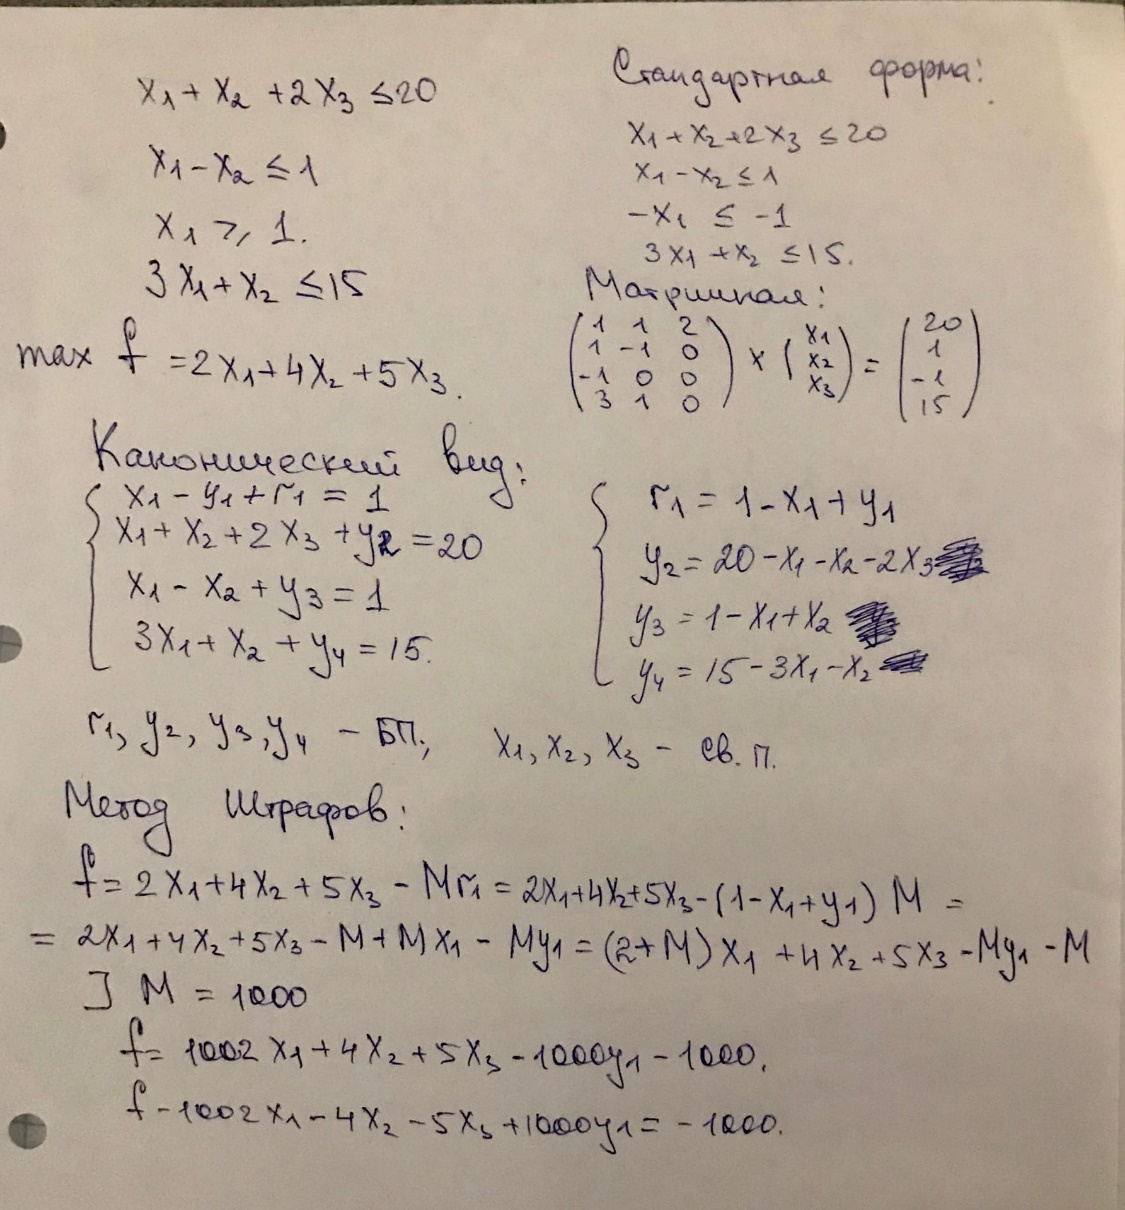 x₁ + x₂ + 2x₃ ≤ 20
x₁ - x₂ ≤ 1
x₁ ≥ 1.
3x₁ + x₂ ≤ 15
max f = 2x₁ + 4x₂ + 5x₃.
Стандартная форма:
x₁ + x₂ + 2x₃ ≤ 20
x₁ - x₂ ≤ 1
-x₁ ≤ -1
3x₁ + x₂ ≤ 15.
Матричная:
( 1 1 2 ) ( 20 )
( 1 -1 0 ) × ( x₁ x₂ x₃ ) = ( 1 )
( -1 0 0 ) ( -1 )
( 3 1 0 ) ( 15 )
Канонический вид:
x₁ - y₁ + r₁ = 1
x₁ + x₂ + 2x₃ + y₂ = 20
x₁ - x₂ + y₃ = 1
3x₁ + x₂ + y₄ = 15.
r₁ = 1 - x₁ + y₁
y₂ = 20 - x₁ - x₂ - 2x₃
y₃ = 1 - x₁ + x₂
y₄ = 15 - 3x₁ - x₂
r₁, y₂, y₃, y₄ - БП; x₁, x₂, x₃ - св. п.
Метод Штрафов:
f = 2x₁ + 4x₂ + 5x₃ - Mr₁ = 2x₁ + 4x₂ + 5x₃ - (1 - x₁ + y₁) M =
= 2x₁ + 4x₂ + 5x₃ - M + Mx₁ - My₁ = (2 + M) x₁ + 4x₂ + 5x₃ - My₁ - M
] M = 1000
f = 1002x₁ + 4x₂ + 5x₃ - 1000y₁ - 1000.
f - 1002x₁ - 4x₂ - 5x₃ + 1000y₁ = - 1000.